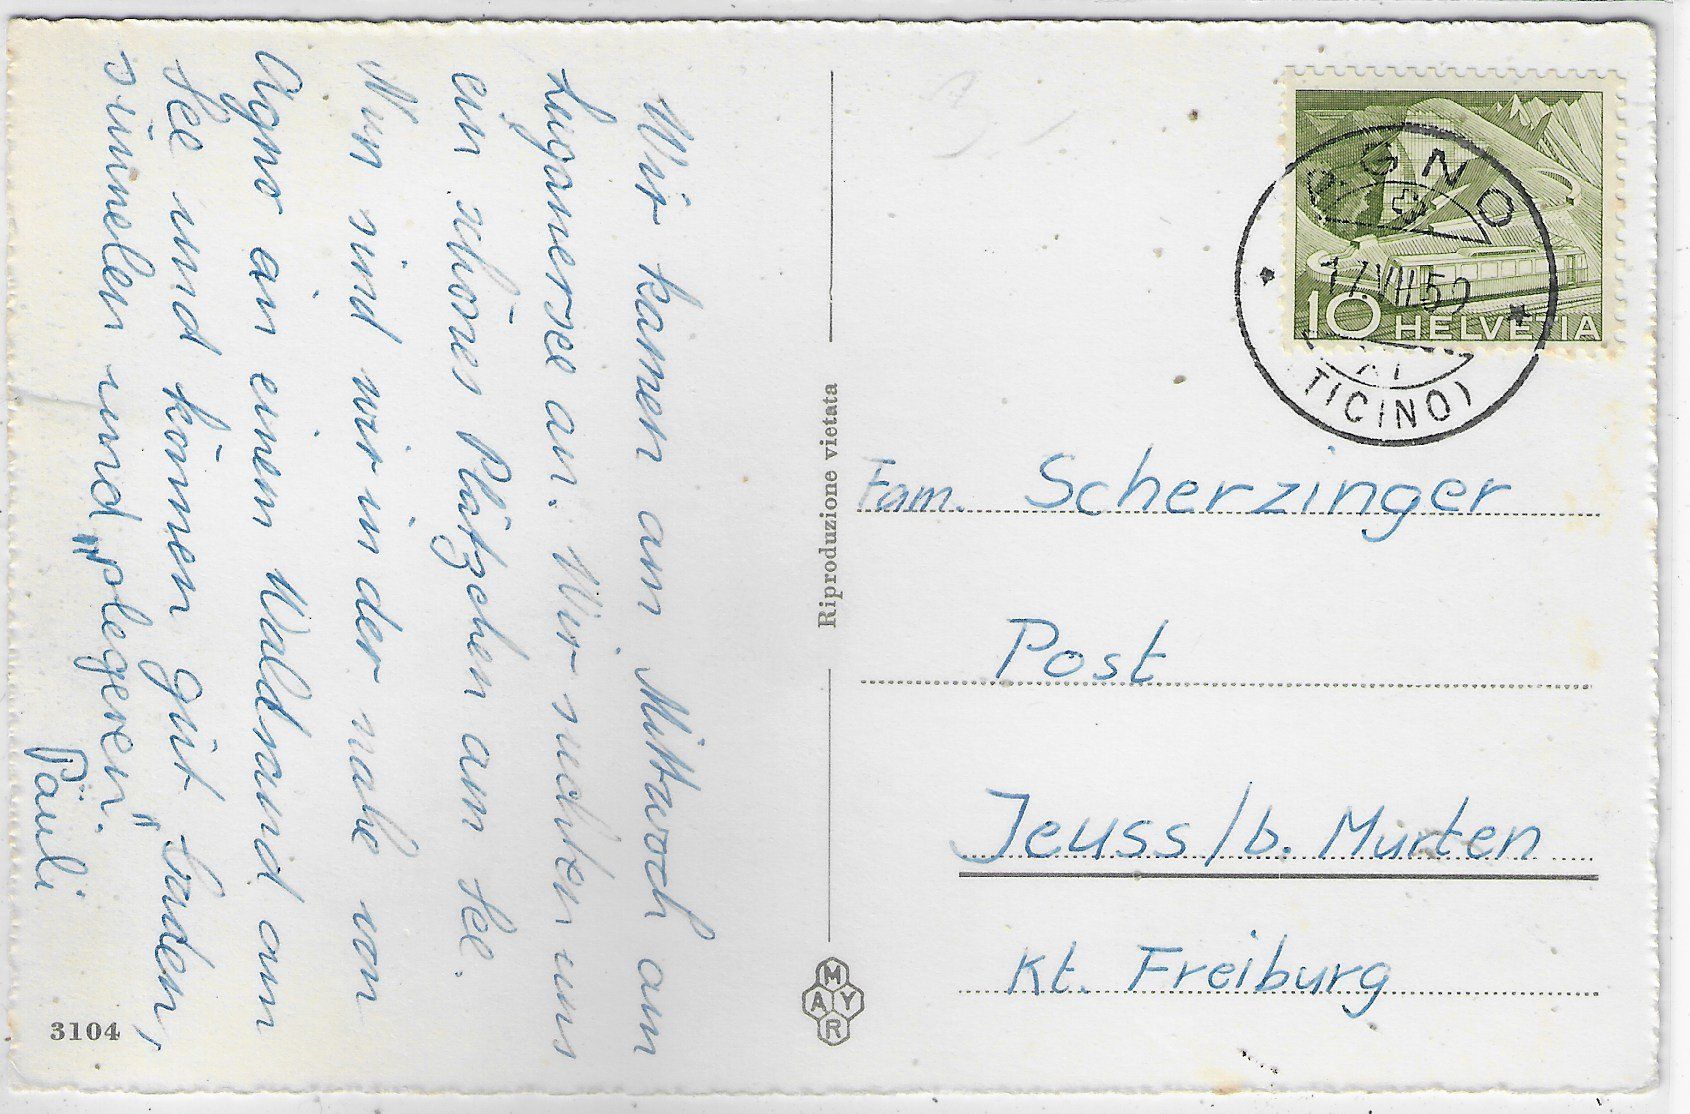 Wir kamen am Mittwoch am
Luganersee an. Wir suchten uns
ein schönes Plätzchen am See.
Nun sind wir in der nahe von
Agno an einem Waldrand am
See und können gut baden,
sünnelen und „plegeren".
Päuli
3104
Riproduzione vietata
MAYR
GNO
17.VIII.59
(TICINO)
10 HELVETIA
Fam. Scherzinger
Post
Jeuss / b. Murten
Kt. Freiburg